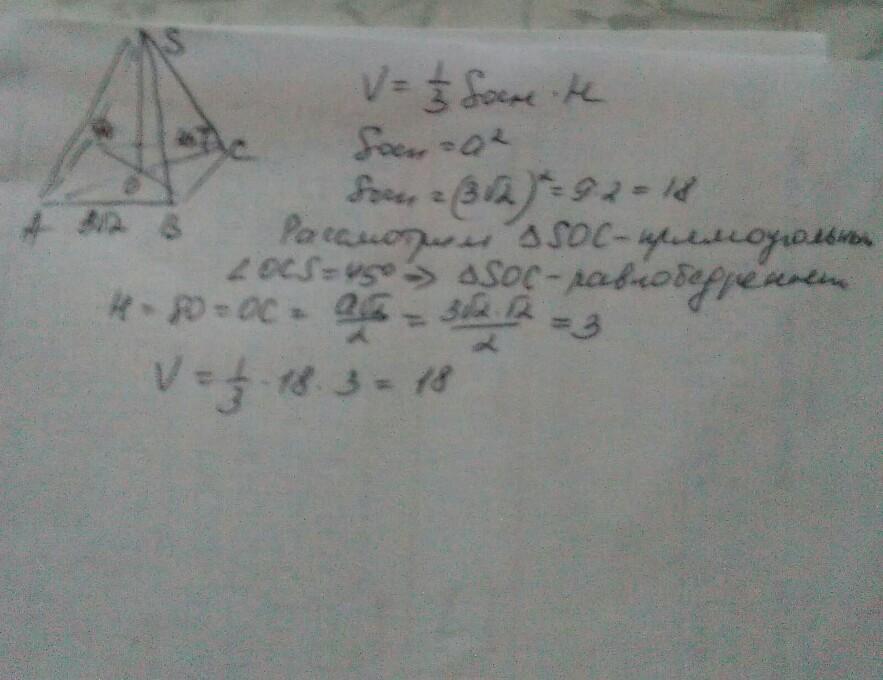 S
45°
C
O
A 3√2 B
V = 1/3 Sосн · H
Sосн = a²
Sосн = (3√2)² = 9·2 = 18
Рассмотрим △SOC - прямоугольный
∠OCS = 45° ⇒ △SOC - равнобедренный
H = SO = OC = a√2/2 = 3√2·√2/2 = 3
V = 1/3 · 18 · 3 = 18